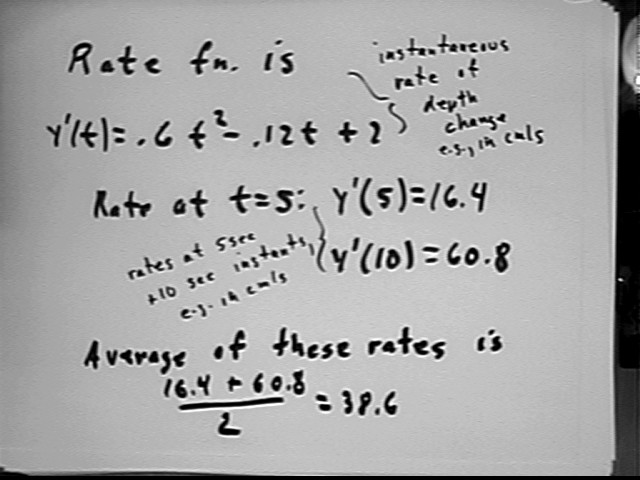 Rate fn. is
instantaneous
rate of
depth
change
e.g., in cm/s
y'(t)=.6 t² - .12t + 2
Rate at t=5: y'(5)=16.4
y'(10)=60.8
rates at 5 sec
+10 sec instants,
e.g. in cm/s
Average of these rates is
16.4 + 60.8
2
= 38.6